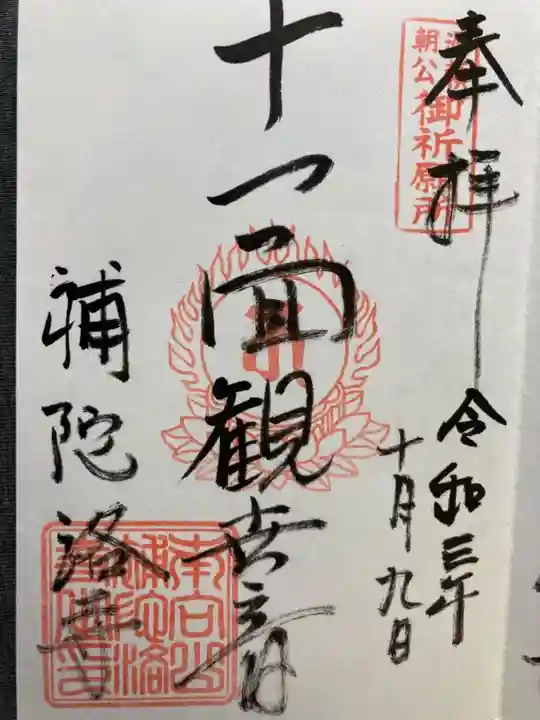 奉拝
令和三年
十月九日
朝公御祈願所
十一面観世音
補陀洛寺
南向山